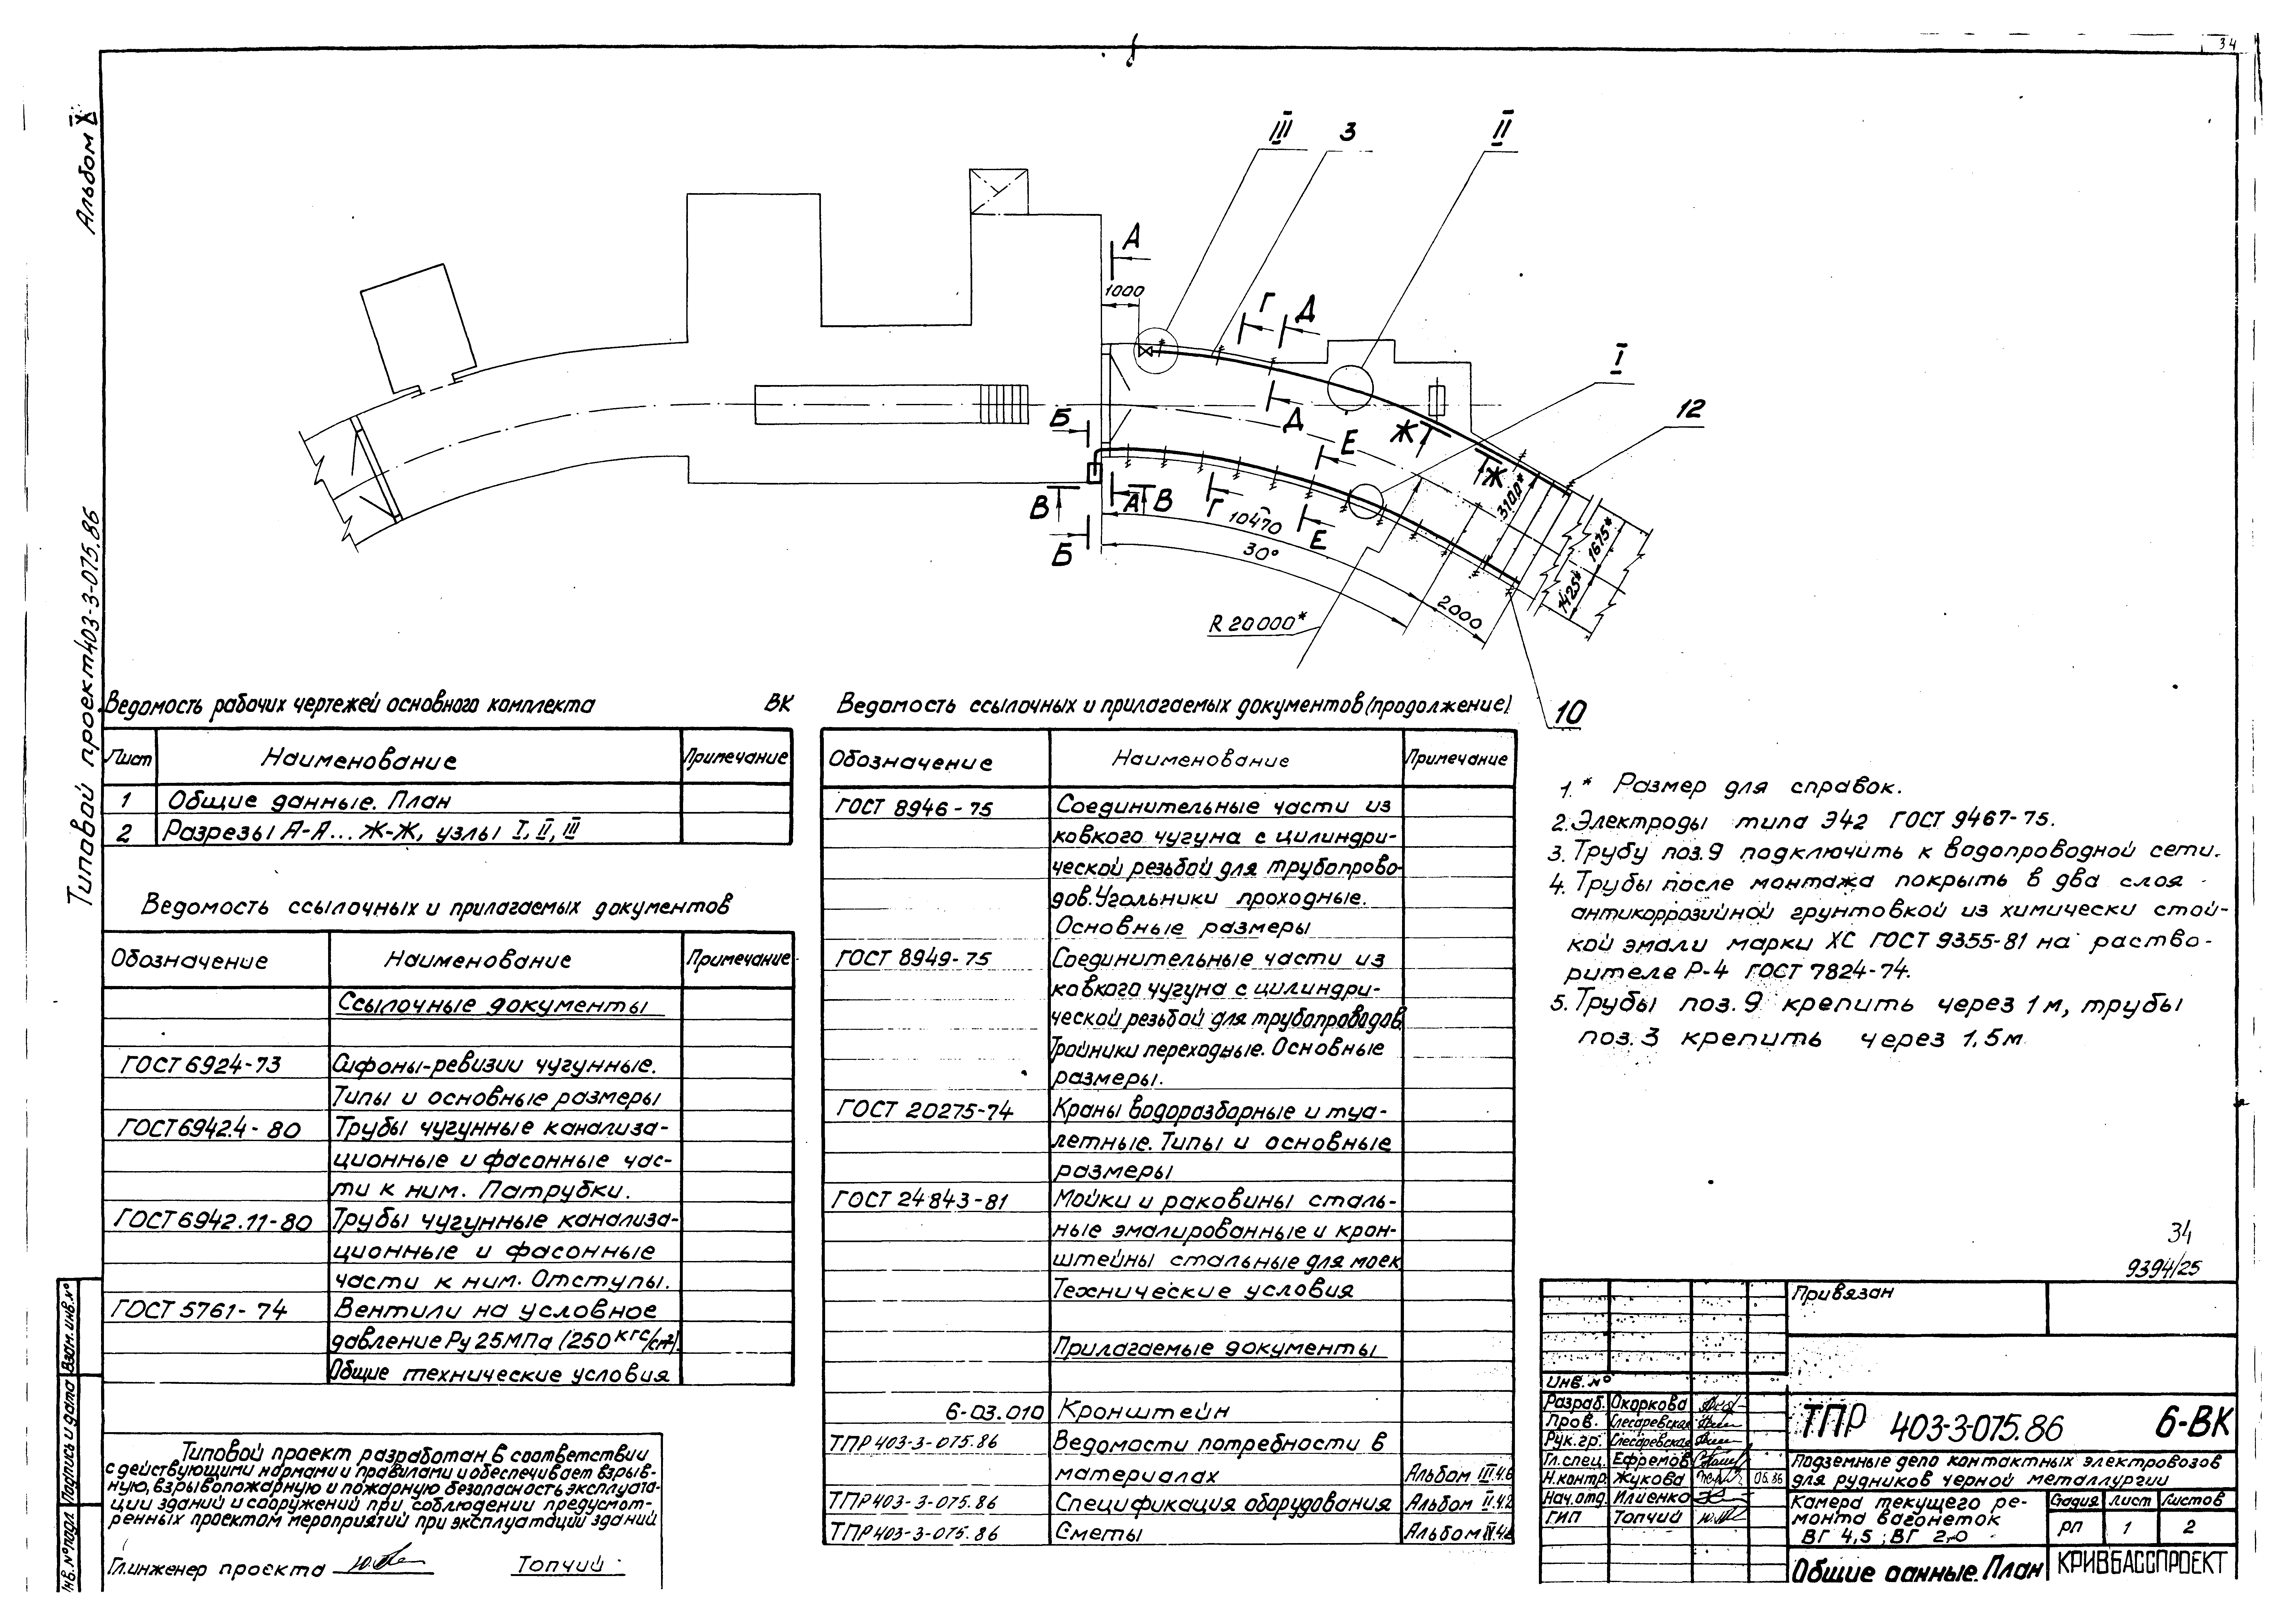 34
Альбом X
Типовой проект 403-3-075.86
III
3
II
А
1000
Г
Д
I
12
Б
Д
Е
Ж
Ж
3100*
В
А
В
Г
10470
Е
Б
30°
1675*
1425*
2000
R 20000*
10
Ведомость рабочих чертежей основного комплекта ВК
Лист Наименование Примечание
1 Общие данные. План
2 Разрезы А-А... Ж-Ж, узлы I, II, III
Ведомость ссылочных и прилагаемых документов
Обозначение Наименование Примечание
Ссылочные документы
ГОСТ 6924-73 Сифоны-ревизии чугунные.
Типы и основные размеры
ГОСТ 6942.4-80 Трубы чугунные канализа-
ционные и фасонные час-
ти к ним. Патрубки.
ГОСТ 6942.11-80 Трубы чугунные канализа-
ционные и фасонные
части к ним. Отступы.
ГОСТ 5761-74 Вентили на условное
давление Ру 25МПа (250 кгс/см²).
Общие технические условия
Типовой проект разработан в соответствии
с действующими нормами и правилами и обеспечивает взрыв-
ную, взрывопожарную и пожарную безопасность эксплуата-
ции зданий и сооружений при соблюдении предусмот-
ренных проектом мероприятий при эксплуатации зданий
Гл. инженер проекта Топчий
Ведомость ссылочных и прилагаемых документов (продолжение)
Обозначение Наименование Примечание
ГОСТ 8946-75 Соединительные части из
ковкого чугуна с цилиндри-
ческой резьбой для трубопрово-
дов. Угольники проходные.
Основные размеры
ГОСТ 8949-75 Соединительные части из
ковкого чугуна с цилиндри-
ческой резьбой для трубопроводов.
Тройники переходные. Основные
размеры.
ГОСТ 20275-74 Краны водоразборные и туа-
летные. Типы и основные
размеры
ГОСТ 24843-81 Мойки и раковины сталь-
ные эмалированные и крон-
штейны стальные для моек
Технические условия
Прилагаемые документы
6-03.010 Кронштейн
ТПР 403-3-075.86 Ведомости потребности в
материалах Альбом III
ТПР 403-3-075.86 Спецификация оборудования Альбом II
ТПР 403-3-075.86 Сметы Альбом IV
1.* Размер для справок.
2. Электроды типа Э42 ГОСТ 9467-75.
3. Трубу поз. 9 подключить к водопроводной сети.
4. Трубы после монтажа покрыть в два слоя
антикоррозийной грунтовкой из химически стой-
кой эмали марки ХС ГОСТ 9355-81 на раство-
рителе Р-4 ГОСТ 7824-74.
5. Трубы поз. 9 крепить через 1м, трубы
поз. 3 крепить через 1,5м
34
9394/25
Привязан
Инв. №
Разраб. Окоркова
Пров. Слесаревская
Рук.гр. Слесаревская
Гл.спец. Ефремов
Н.контр. Жукова 06.86
Нач.отд. Илиенко
ГИП Топчий
ТПР 403-3-075.86 6-ВК
Подземные депо контактных электровозов
для рудников черной металлургии
Камера текущего ре-
монта вагонеток
ВГ 4,5; ВГ 2,0
Стадия Лист Листов
рп 1 2
Общие данные. План
КРИВБАССПРОЕКТ
Взам. инв. №
Подпись и дата
Инв. № подл.